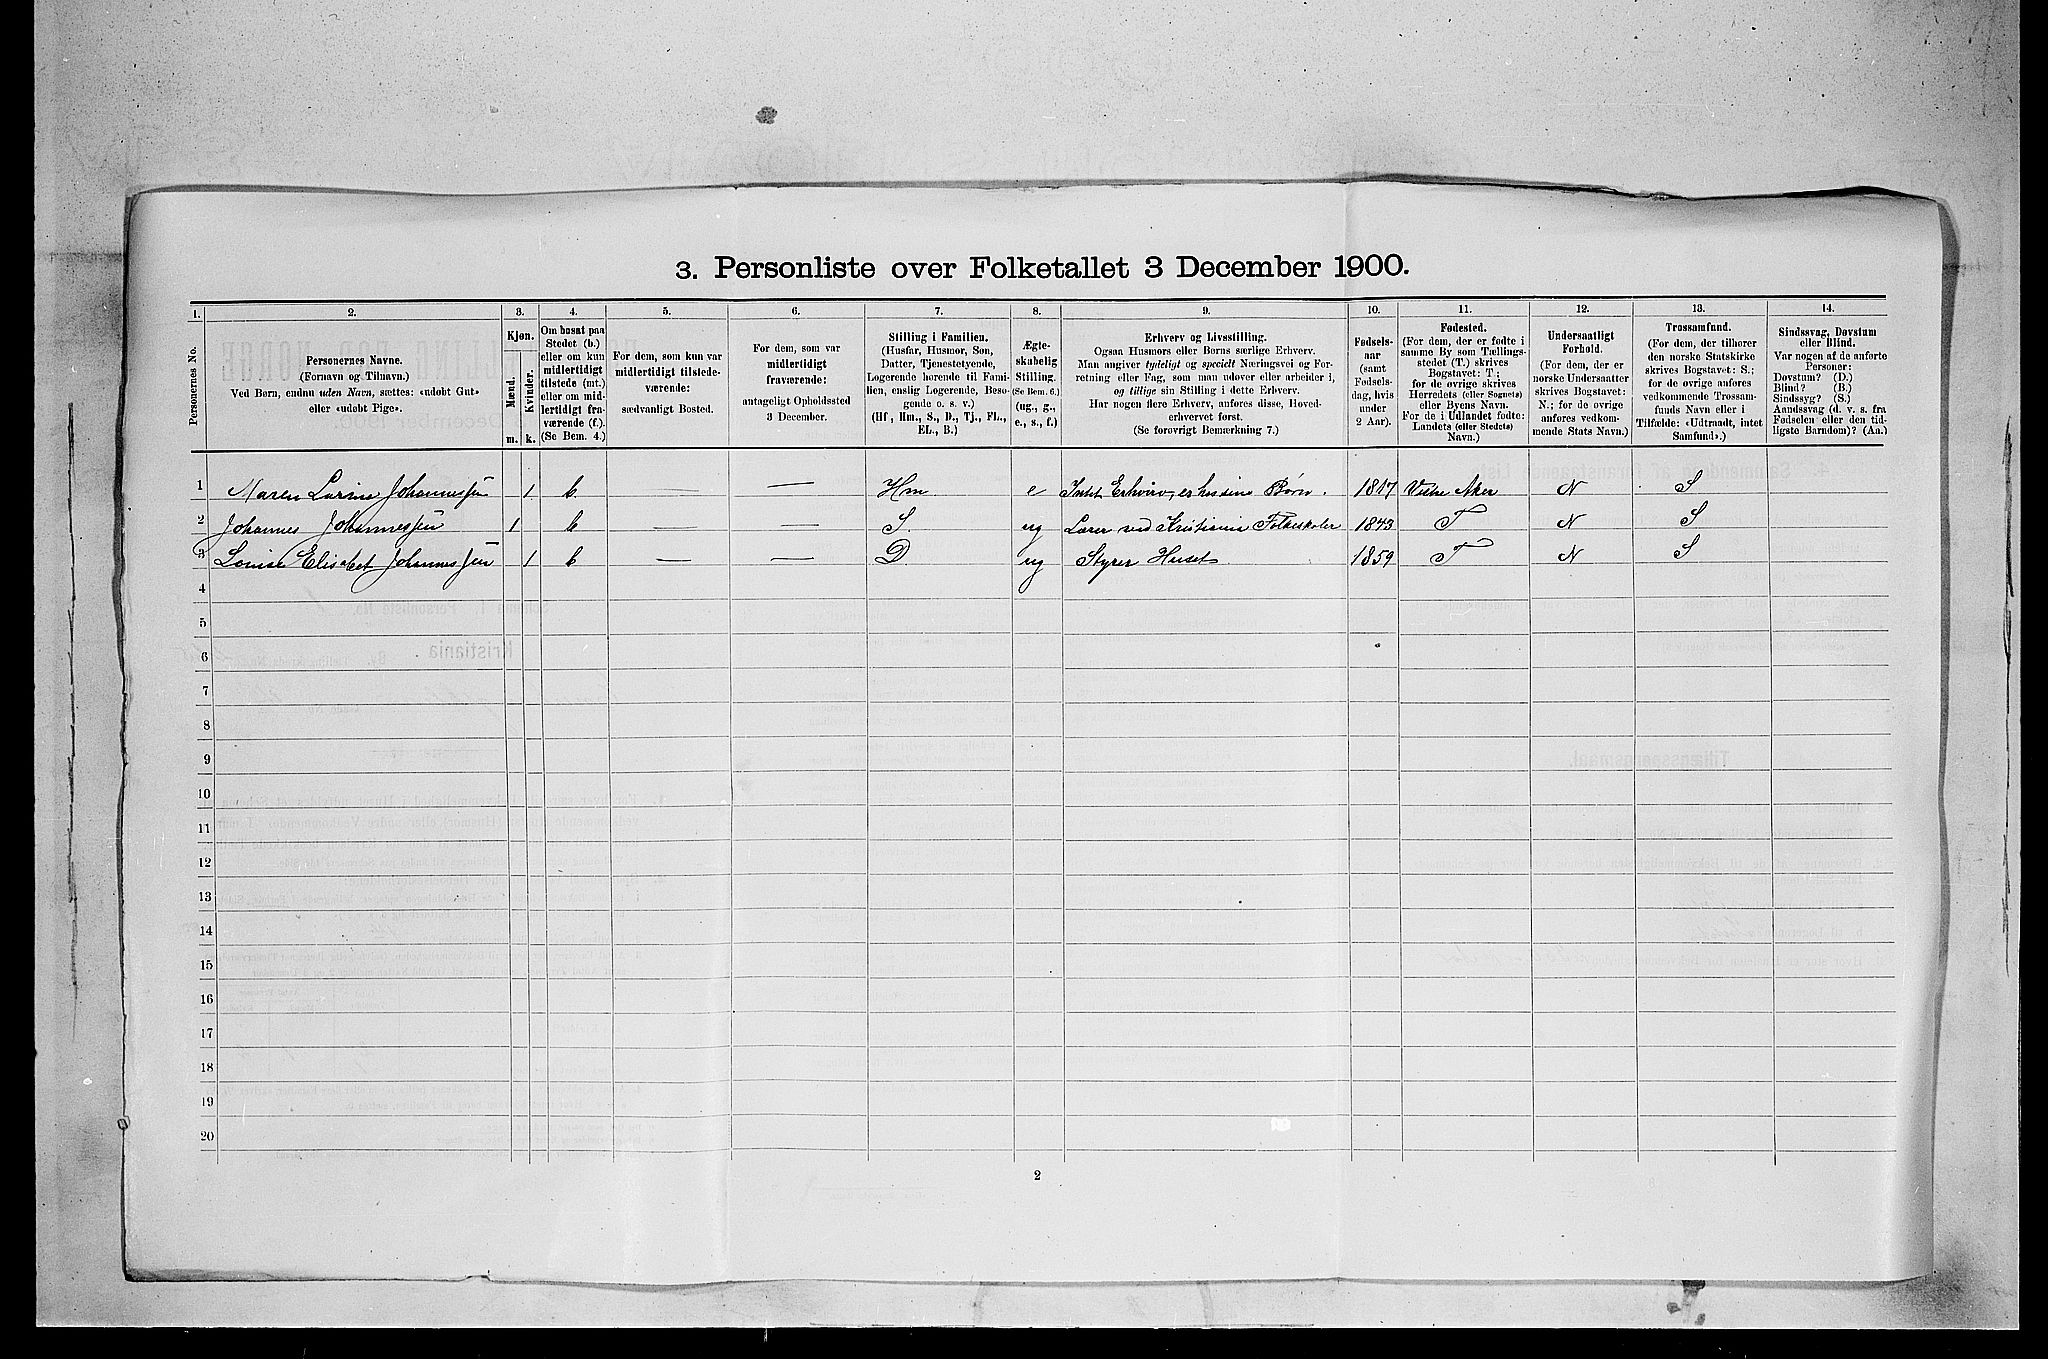 3. Personliste over Folketallet 3 December 1900.
1. 2. 3. 4. 5. 6. 7. 8. 9. 10. 11. 12. 13. 14.
Personernes No.
Personernes Navne.
(Fornavn og Tilnavn.)
Ved Børn, endnu uden Navn, sættes: «udøbt Gut»
eller «udøbt Pige».
Kjøn.
Mænd.
Kvinder.
m. k.
Om bosat paa
Stedet (b.)
eller om kun
midlertidigt
tilstede (mt.)
eller om mid-
lertidigt fra-
værende (f.).
(Se Bem. 4.)
For dem, som kun var
midlertidigt tilstede-
værende:
sædvanligt Bosted.
For dem, som var
midlertidigt
fraværende:
antageligt Opholdssted
3 December.
Stilling i Familien.
(Husfar, Husmor, Søn,
Datter, Tjenestetyende,
Logerende hørende til Fami-
lien, enslig Logerende, Besø-
gende o. s. v.)
(Hf, Hm., S., D., Tj., FL.,
EL., B.)
Ægte-
skabelig
Stilling.
(Se Bem. 6.)
(ug., g.,
e., s., f.)
Erhverv og Livsstilling.
Ogsaa Husmors eller Børns særlige Erhverv.
Man angiver tydeligt og specielt Næringsvei og For-
retning eller Fag, som man udøver eller arbeider i,
og tillige sin Stilling i dette Erhverv.
Har nogen flere Erhverv, anføres disse, Hoved-
erhvervet først.
(Se forøvrigt Bemærkning 7.)
Fødsels-
aar
(samt
Fødsels-
dag, hvis
under
2 Aar).
Fødested.
(For dem, der er fødte i
samme By som Tællings-
stedet (T.) skrives
Bogstavet: T.;
for de øvrige skrives
Herredets (eller Sognets)
eller Byens Navn.
For de i Udlandet fødte:
Landets (eller Stedets)
Navn.)
Undersaatligt
Forhold.
(For dem, der er
norske Undersaatter
skrives Bogstavet:
N.; for de øvrige
anføres vedkom-
mende Stats Navn.)
Trossamfund.
(For dem, der tilhører
den norske Statskirke
skrives Bogstavet: S.;
for de øvrige anføres
vedkommende Trossam-
funds Navn eller i
Tilfælde: «Udtraadt, intet
Samfund».)
Sindssvag, Døvstum
eller Blind.
Var nogen af de anførte
Personer:
Døvstum? (D.)
Blind? (B.)
Sindssyg? (S.)
Aandssvag (d. v. s. fra
Fødselen eller den tid-
ligste Barndom)? (Aa.)
1 Maren Larine Johannessen 1 b — — Hm. e Intet Erhverv, er hos sine Børn. 1817 Vestre Aker N S
2 Johannes Johannessen 1 b — — S. ug Lærer ved Kristiania Folkeskoler 1843 T N S
3 Louise Elisabet Johannessen 1 b — — D. ug Styrer Huset 1859 T N S
4
5
6
7
8
9
10
11
12
13
14
15
16
17
18
19
20
2